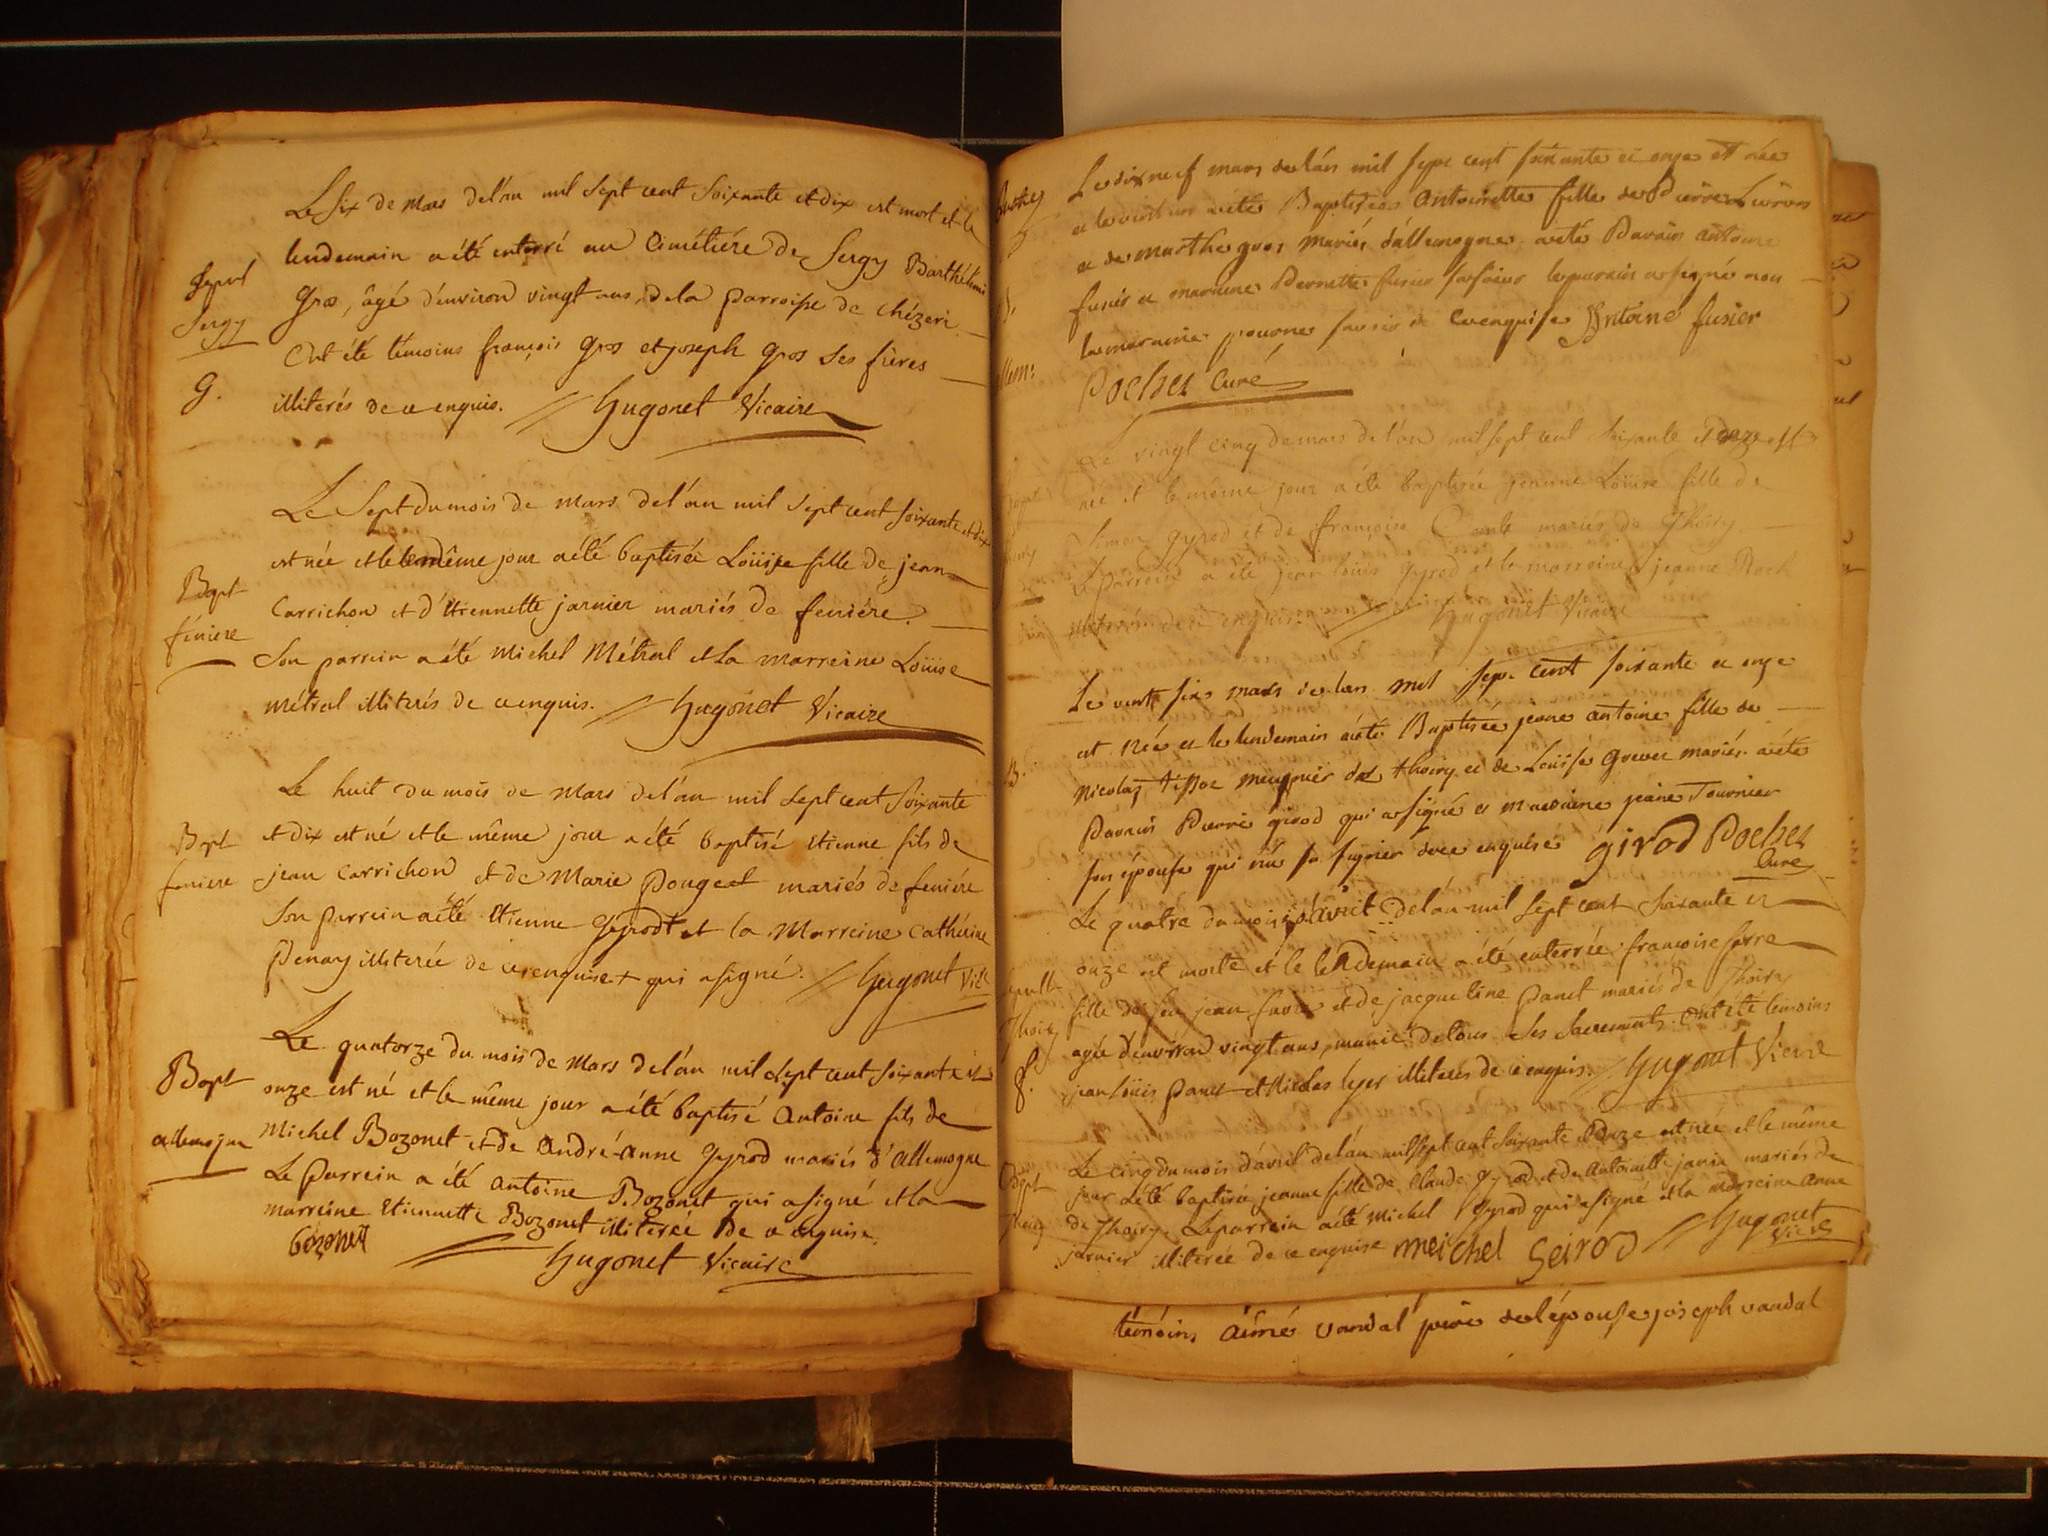 Le six de Mars de l'an mil sept cent soixante et dix est mort et le
lendemain a été enterré au Cimétiére de Sergy Barthélemi
Sepul
Sergy
Gros, âgé d'environ vingt ans, de la parroisse de chézeri
Ont été témoins françois Gros et joseph Gros ses frères
G.
illiterés de ce enquis. Hugonet Vicaire
Le Sept du mois de Mars de l'an mil sept cent soixante et dix
est née et le même jour a été baptisée Loüise fille de jean
Bapt
feniere
Carrichon et d'Etiennette jarnier mariés de feniére.
Son parrein a été Michel Métral et la marreine Loüise
Métral illiterés de ce enquis. Hugonet Vicaire
Le huit du mois de Mars de l'an mil sept cent soixante
Bapt
feniere
et dix est né et le même jour a été baptisé Etienne fils de
jean Carrichon et de Marie Pouget mariés de feniére
Son parrein a été Etienne Gyrod et la Marreine Cathérine
Penay illiterée de ce enquise + qui a signé. Hugonet Vic
Le quatorze du mois de Mars de l'an mil sept cent soixante et
Bapt
allemogne
onze est né et le même jour a été baptisé Antoine fils de
Michel Bozonet et de André-Anne Gyrod mariés d'Allemogne
Le Parrein a été Antoine Bozonet qui a signé et la
marreine Etiennette Bozonet illiterée de ce enquise.
bozonet
Hugonet Vicaire
Le dix neuf mars de lan mil sept cent soixante et onze et née
et le a été Baptisée Antoinette fille de Pierre
et de marthe gros mariés d'allemogne a été Parain antoine
fusier et maraine Pernette fusier sa soeur le parain a signé non
la maraine pour ne savoir de ce enquise Antoine fusier
allem:
Pochet Curé
Le vingt cinq de mars de l'an mil sept cent soixante et onze est
née et le même jour a été baptisée jeanne Loüise fille de
Simon gyrod et de françoise mariés de Thoiry
Le parrein a été jean Loüis Gyrod et la marreine jeanne
illiterés de ce enquis. Hugonet Vicaire
Le vent six mars de lan mil sept cent soixante et onze
B.
est née et le lendemain a été Baptisée jeane antoine fille de
Nicolas tissot meugnier de thoiry et de Loüise mariés a été
Parain Pierre girod qui a signé et maraine jeane Tournier
son épouse qui n'a su signer de ce enquise girod Pochet
Curé
Le quatre du mois d'avril de l'an mil sept cent soixante et
onze est morte et le lendemain a été enterrée françoise favre
Sepult
Thoiry
fille de feu jean favre et de jacqueline Panet mariés de Thoiry
agée d'environ vingt ans, munie de tous ses Sacrements. Ont été témoins
f.
jean Loüis Panet et Nicolas leger illiterés de ce enquis. Hugonet Vicaire
Le cinq du mois d'avril de l'an mil sept cent soixante et onze est née et le même
Bapt
Thoiry
jour a été baptisée jeanne fille de Claude gyrod et de Antoinette janin mariés de
de Thoiry. Le parrein a été Michel Gyrod qui a signé et la marreine Anne
jarnier illiterée de ce enquise meichel Geirod Hugonet
Vicre
témoins aimé vandal père de lépouse joseph vandal